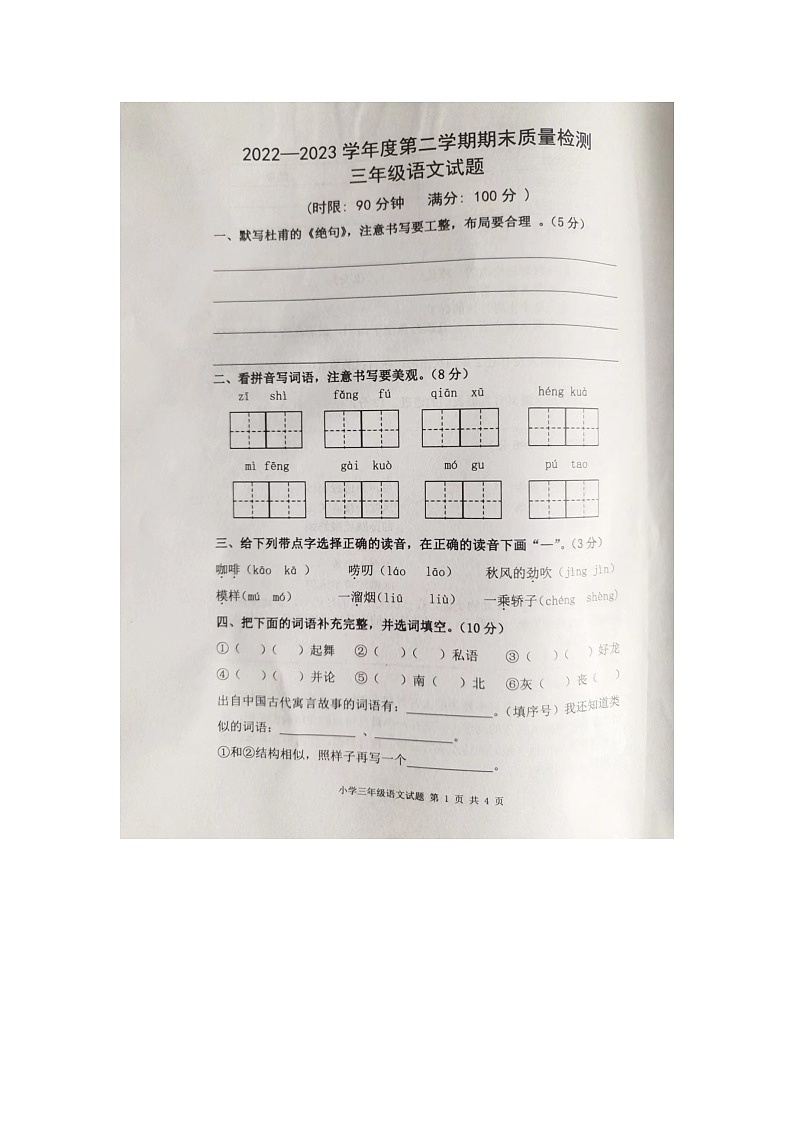 2022—2023 学年度第二学期期末质量检测
三年级语文试题
(时限: 90 分钟 满分: 100 分 )
一、默写杜甫的《绝句》，注意书写要工整，布局要合理 。(5 分)
二、看拼音写词语，注意书写要美观。(8 分)
zī shì fǎng fú qiān xū héng kuà
mì fēng gài kuò mó gu pú tao
三、给下列带点字选择正确的读音，在正确的读音下画“—”。(3 分)
咖啡（kāo kā ） 唠叨（láo lāo） 秋风的劲吹（jìng jìn）
模样(mú mó） 一溜烟(liū liù） 一乘轿子(chéng shèng)
四、把下面的词语补充完整，并选词填空。(10 分)
①（ ）（ ）起舞 ②（ ）（ ）私语 ③（ ）（ ）好龙
④（ ）（ ）并论 ⑤（ ）南（ ）北 ⑥灰（ ）丧（ ）
出自中国古代寓言故事的词语有：____________。（填序号）我还知道类
似的词语：__________ 、___________。
①和②结构相似，照样子再写一个____________。
小学三年级语文试题 第 1 页 共 4 页